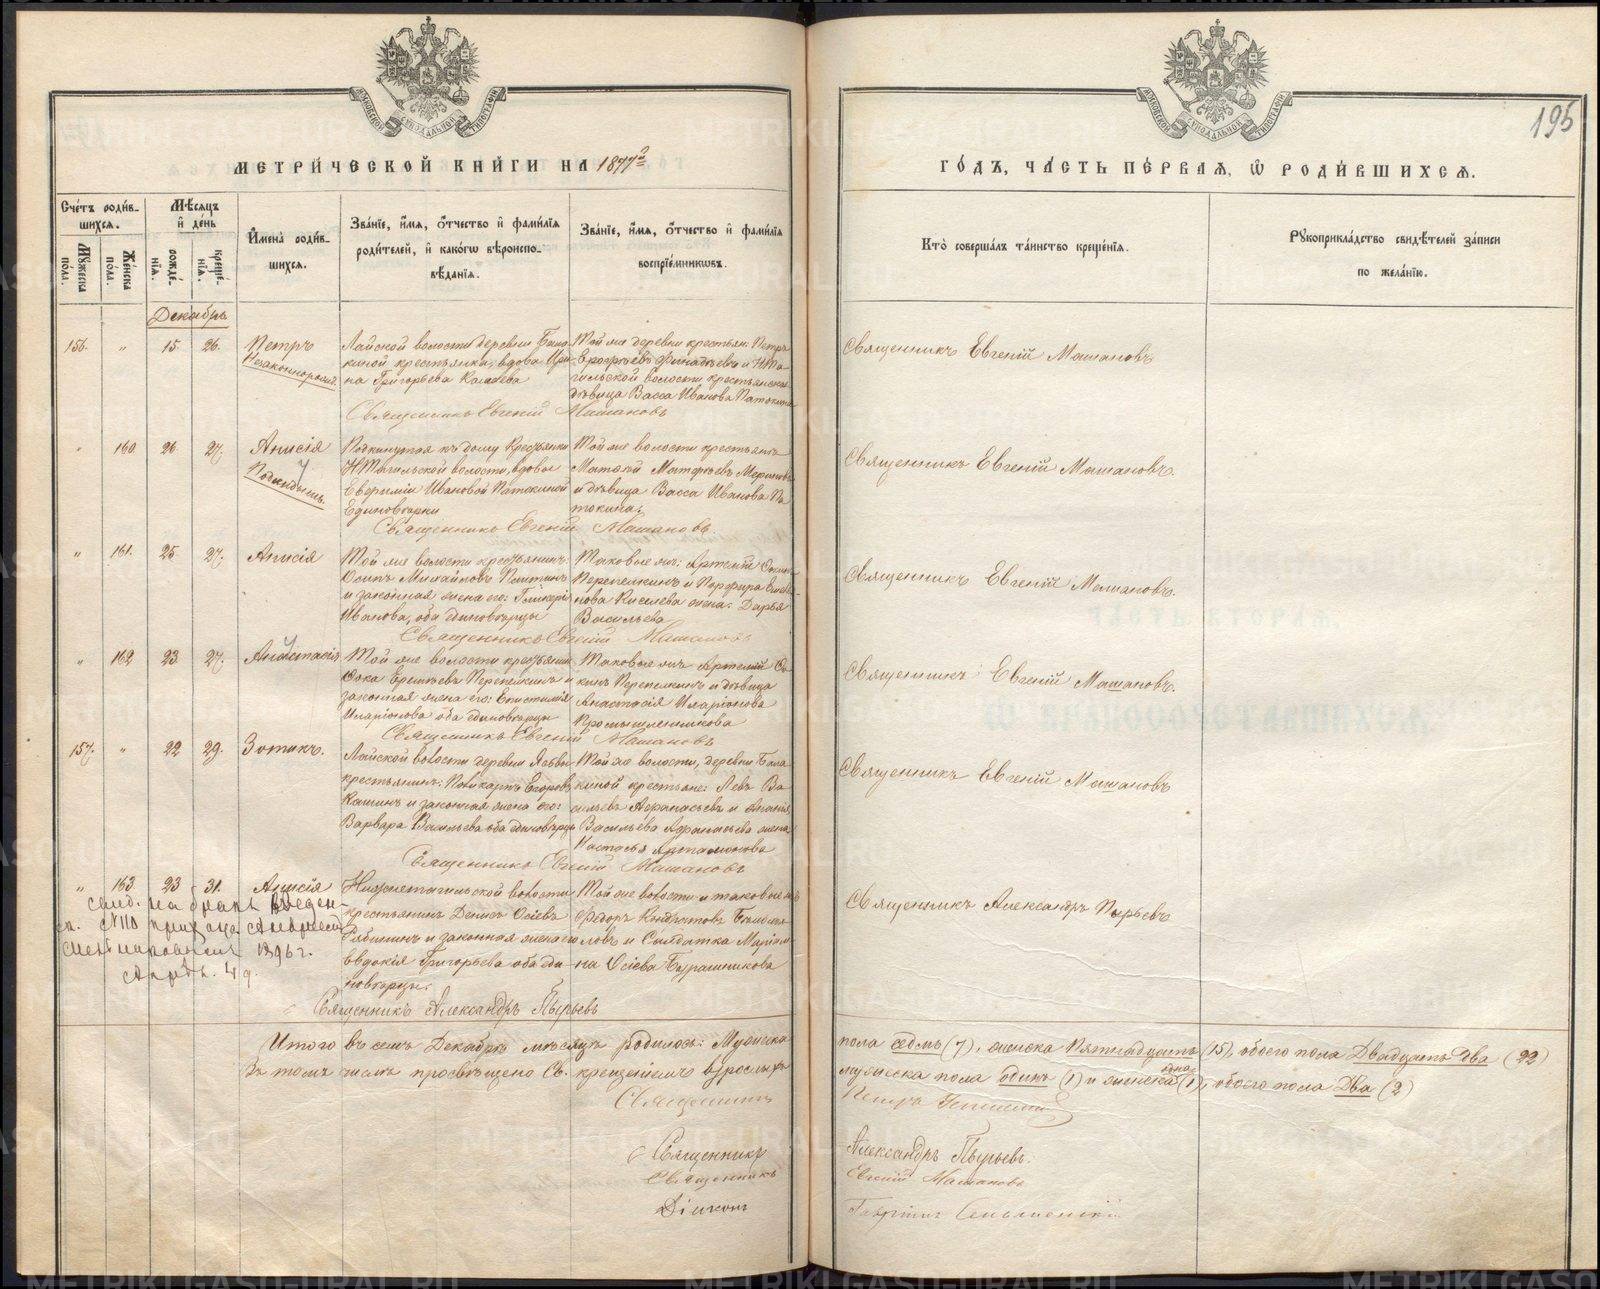 МЕТРИЧЕСКОЙ КНИГИ НА 1877й
Счетъ родив-
шихся.
Мужеска
пола.
Женска
пола.
Мѣсяцъ
и день
рожде-
нія.
креще-
нія.
Имена родив-
шихся.
Званіе, имя, отчество и фамилія
родителей, и какогѡ вѣроиспо-
вѣданія.
Званіе, имя, отчество и фамилія
воспріемниковъ.
Декабрь
156. " 15 26. Петръ
Незаконнорожд.
Лайской волости деревни
киной крестьянка, вдова Ири-
на Григорьева
Той же деревни крестьян. Петръ
и НТа-
гильской волости крестьянская
дѣвица Васса Иванова Патокина
Священникъ Евгеній Машановъ
" 160 26 27. Анисія
Подкидышъ.
Подкинутая къ дому Крестьянки
НТагильской волости, вдовы
Евфиміи Ивановой Патокиной
Единовѣрки
Той же волости крестьянинъ
Матвѣй Матфѣевъ
и дѣвица Васса Иванова Па-
токина.
Священникъ Евгеній Машановъ.
" 161. 25 27. Анисія
Той же волости крестьянинъ:
Осипъ Михайловъ
и законная жена его: Гликерія
Иванова, оба единовѣрцы
Таковые же: Артемій
Перепелкинъ и Порфира
Киселева жена: Дарья
Васильева
Священникъ Евгеній Машановъ
" 162 23 27. Анастасія
Той же волости крестьянинъ
Фока Еремѣевъ Перепелкинъ и
законная жена его: Епистимія
Иларіонова оба единовѣрцы
Таковые же Артемій Фо-
кинъ Перепелкинъ и дѣвица
Анастасія Иларіонова
Промышленникова
Священникъ Евгеній Машановъ
157. " 22 29. Зотикъ.
Лайской волости деревни
крестьянинъ: Поликарпъ Егоровъ
Кашинъ и законная жена его:
Варвара Васильева оба единовѣрцы
Той же волости, деревни Бала-
киной крестьяне: Левъ Ва-
сильевъ Афанасьевъ и
Васильева Афанасьева жена
Настасья Артамонова
Священникъ Евгеній Машановъ
" 163 23 31. Анисія
Нижнетагильской волости
крестьянинъ Денисъ Осіевъ
Рябининъ и законная жена его
Евдокія Григорьева оба еди-
новѣрцы.
Той же волости и таковые же
Федоръ Кондратовъ
и Солдатка Маріам-
на Осіева Бурашникова
на бракъ
№ 110
1896 г.
Священникъ Александръ Пырьевъ
Итого въ семъ Декабрѣ мѣсяцѣ родилось: Мужеска
Въ томъ числѣ просвѣщено Св. крещеніемъ взрослыхъ
Священникъ
Священникъ
Священникъ
Діаконъ
195
ГОДЪ, ЧАСТЬ ПЕРВАЯ, Ѡ РОДИВШИХСЯ.
Кто совершалъ таинство крещенія.
Рукоприкладство свидѣтелей записи
по желанію.
Священникъ Евгеній Машановъ
Священникъ Евгеній Машановъ.
Священникъ Евгеній Машановъ.
Священникъ Евгеній Машановъ.
Священникъ Евгеній Машановъ
Священникъ Александръ Пырьевъ
пола седмь (7), женска Пятнадцать (15), обоего пола Двадцать два (22)
мужеска пола одинъ (1) и женска одна (1), обоего пола Два (2)
Петръ
Александръ Пырьевъ.
Евгеній Машановъ